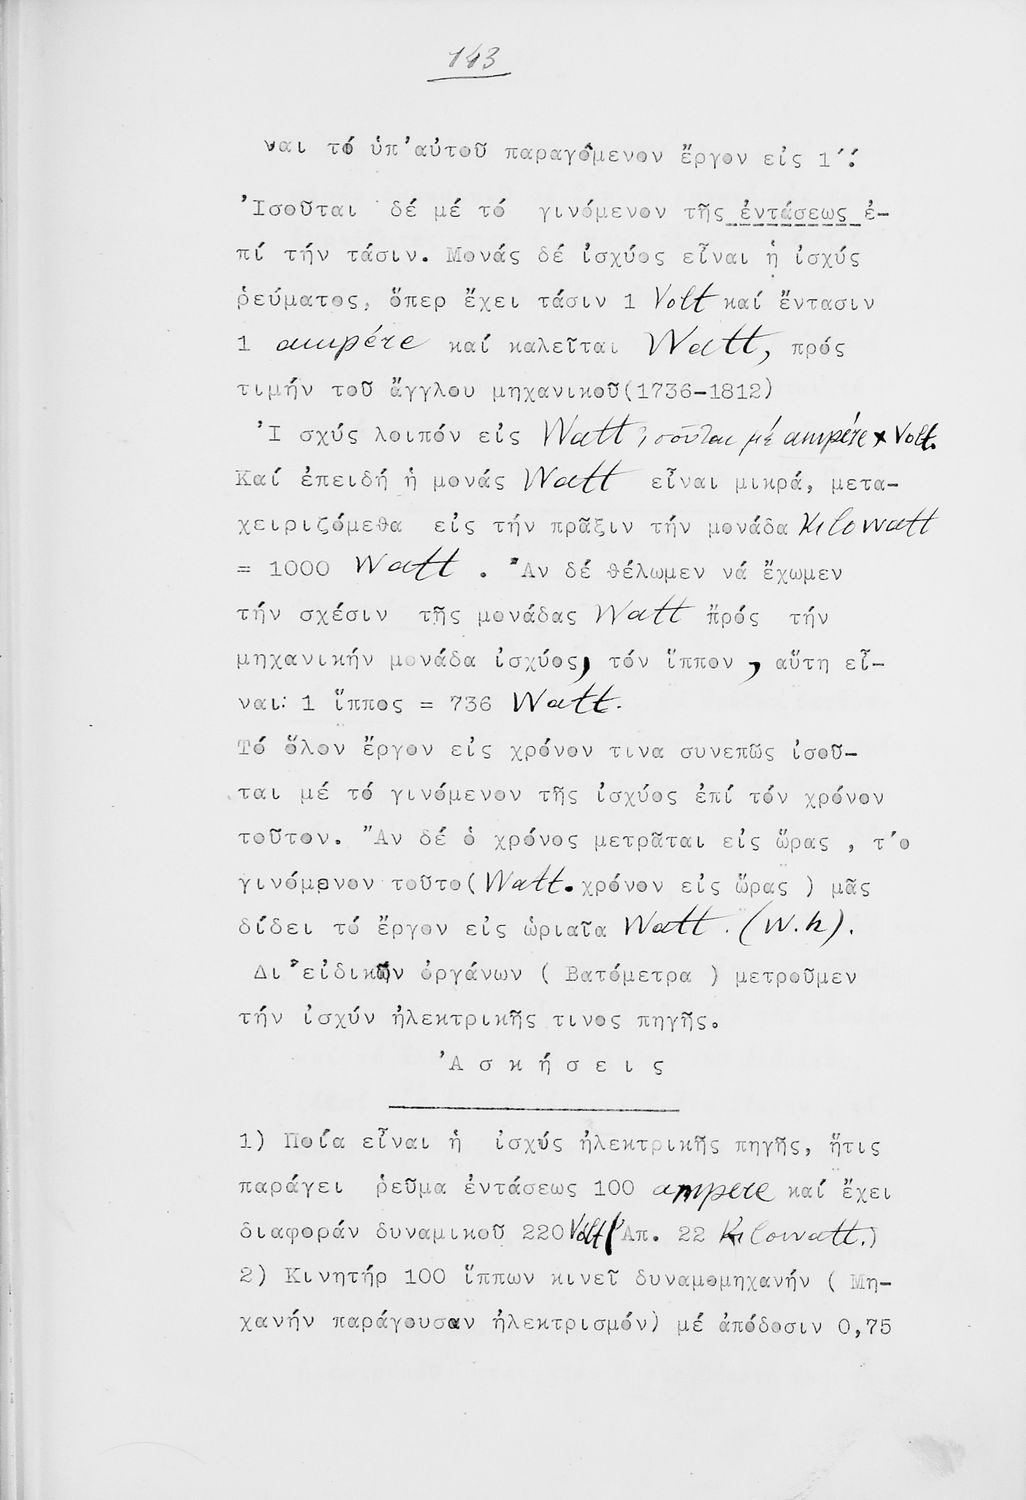 143
ναι τό ὑπ'αὐτοῦ παραγόμενον ἔργον εἰς 1΄΄.
Ἰσοῦται δέ μέ τό γινόμενον τῆς ἐντάσεως ἐ-
πί τήν τάσιν. Μονάς δέ ἰσχύος εἶναι ἡ ἰσχύς
ῥεύματος, ὅπερ ἔχει τάσιν 1 Volt καί ἔντασιν
1 ampére καί καλεῖται Watt, πρός
τιμήν τοῦ ἄγγλου μηχανικοῦ(1736-1812)
Ἰ σχύς λοιπόν εἰς Watt ἰσοῦται μέ ampére x Volt.
Καί ἐπειδή ἡ μονάς Watt εἶναι μικρά, μετα-
χειριζόμεθα εἰς τήν πρᾶξιν τήν μονάδα Kilowatt
= 1000 Watt . Ἄν δέ θέλωμεν νά ἔχωμεν
τήν σχέσιν τῆς μονάδας Watt πρός τήν
μηχανικήν μονάδα ἰσχύος, τόν ἵππον , αὕτη εἶ-
ναι: 1 ἵππος = 736 Watt.
Τό ὅλον ἔργον εἰς χρόνον τινα συνεπῶς ἰσοῦ-
ται μέ τό γινόμενον τῆς ἰσχύος ἐπί τόν χρόνον
τοῦτον. Ἄν δέ ὁ χρόνος μετρᾶται εἰς ὥρας , τ΄ο
γινόμενον τοῦτο(Watt.χρόνον εἰς ὥρας ) μᾶς
δίδει τό ἔργον εἰς ὡριαῖα Watt . (W.h).
Δι'εἰδικῶν ὀργάνων ( Βατόμετρα ) μετροῦμεν
τήν ἰσχύν ἠλεκτρικῆς τινος πηγῆς.
Ἀ σ κ ή σ ε ι ς
1) Ποία εἶναι ἡ ἰσχύς ἠλεκτρικῆς πηγῆς, ἥτις
παράγει ῥεῦμα ἐντάσεως 100 ampere καί ἔχει
διαφοράν δυναμικοῦ 220 Volt(Ἀπ. 22 Kilowatt.)
2) Κινητήρ 100 ἵππων κινεῖ δυναμομηχανήν ( Μη-
χανήν παράγουσαν ἠλεκτρισμόν) μέ ἀπόδοσιν 0,75